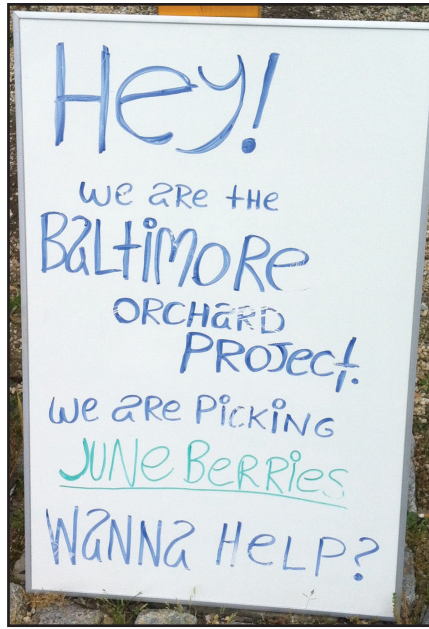 Hey!
We aRe tHe
BaLtiMoRe
ORCHaRD
PROJect.
We aRe PicKiNG
JUNe BeRRies
WaNNa HeLP?